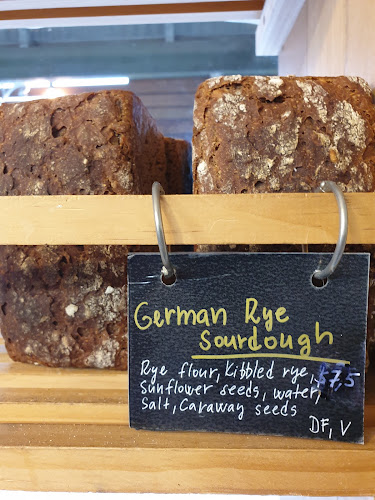 German Rye
Sourdough
Rye flour, Kibbled rye, $7,5
Sunflower seeds, water,
Salt, Caraway seeds
DF, V